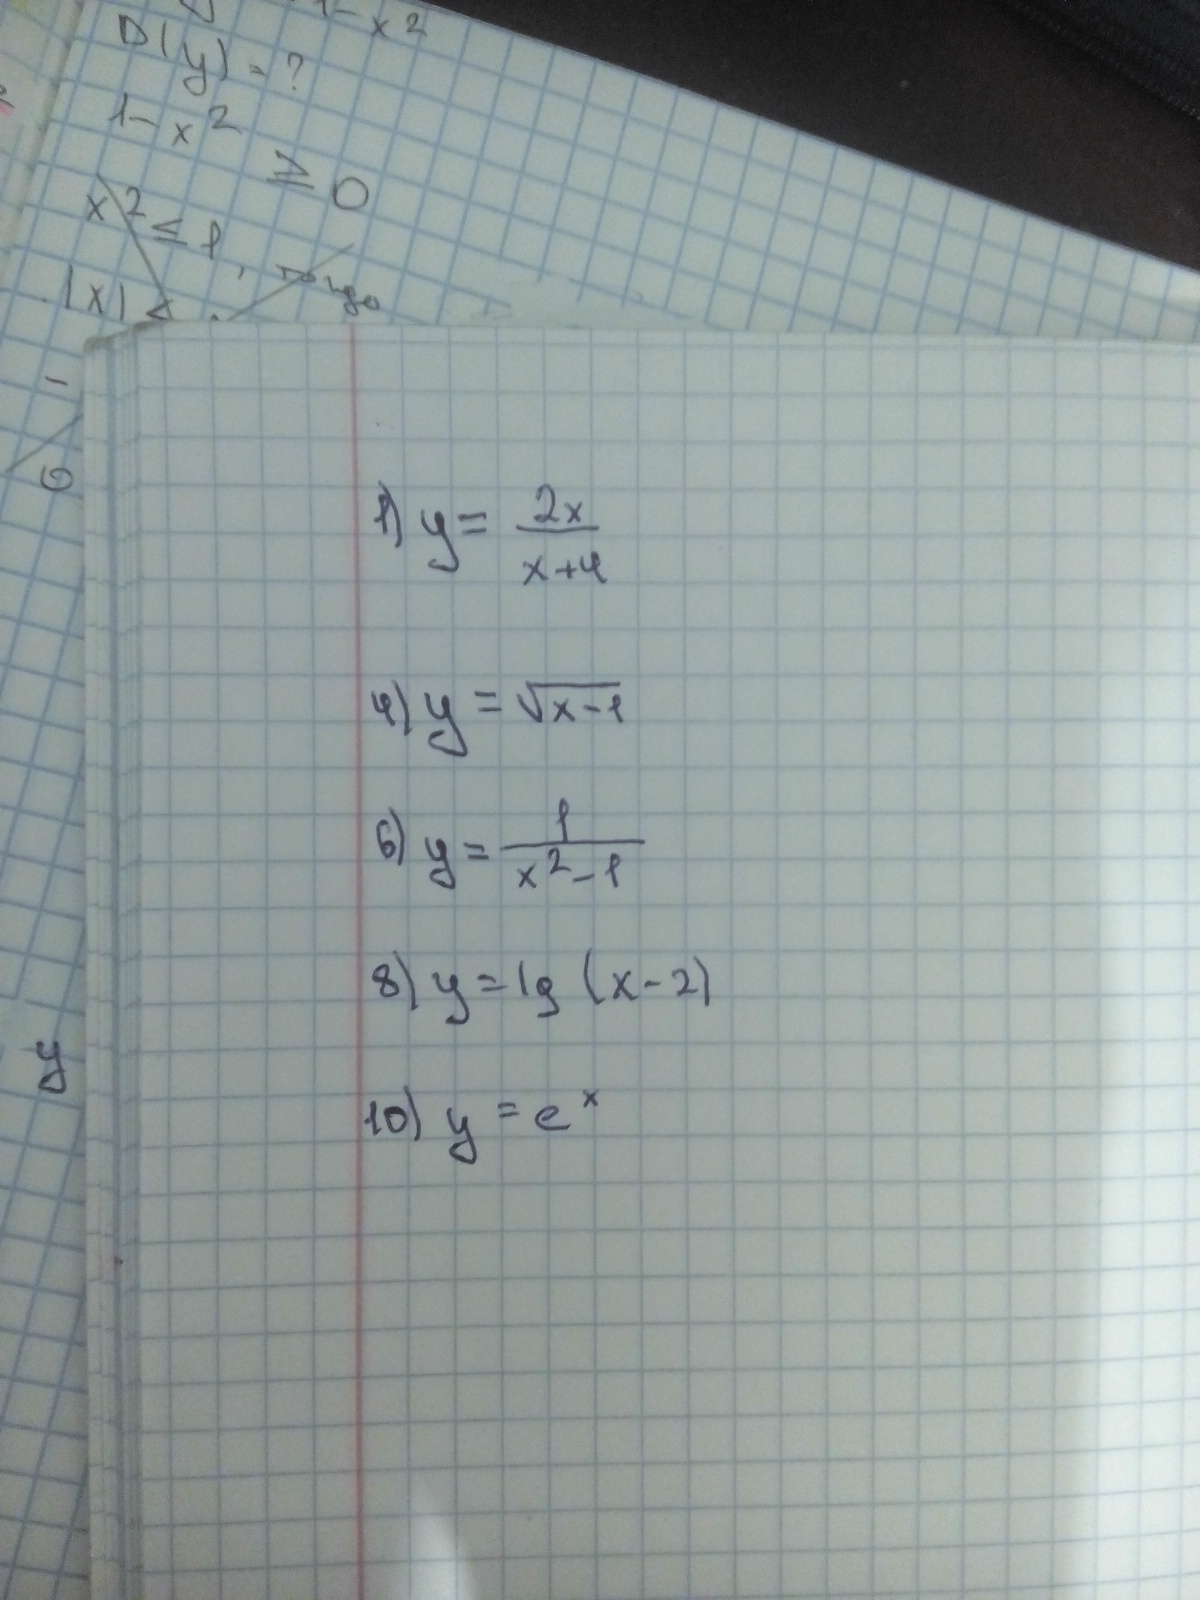 1-x²
D(y) = ?
1-x² ≥ 0
x² ≤ 1, тогда
|x| ≤
y
1) y = 2x/(x+4)
4) y = √(x-1)
6) y = 1/(x²-1)
8) y = lg (x-2)
10) y = eˣ